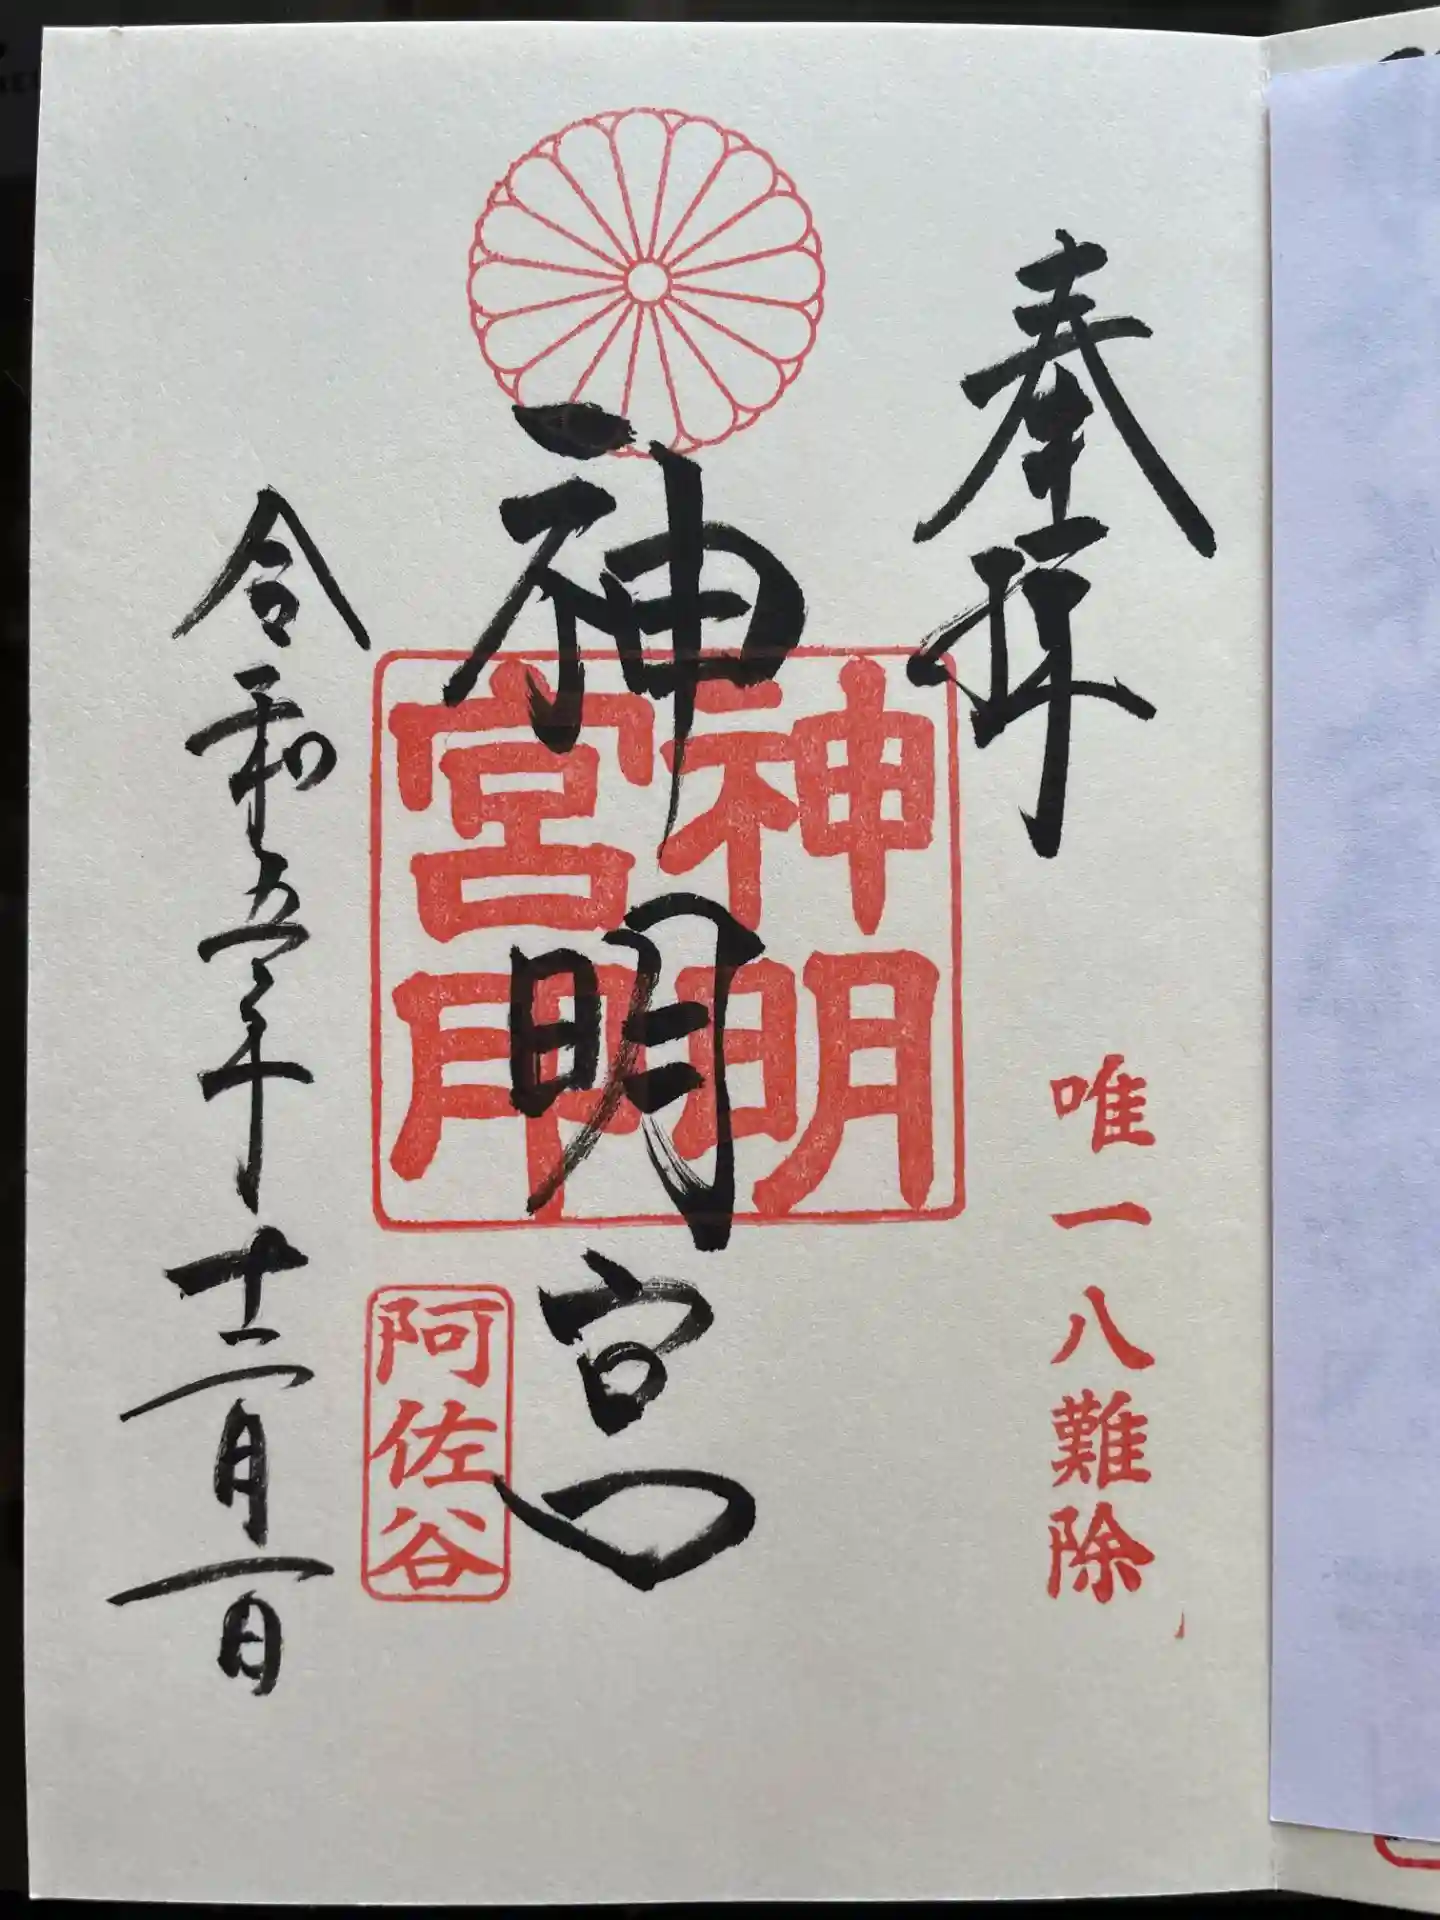 奉拝
唯一八難除
神明宮
神明
宮印
阿佐谷
令和五年十二月一日